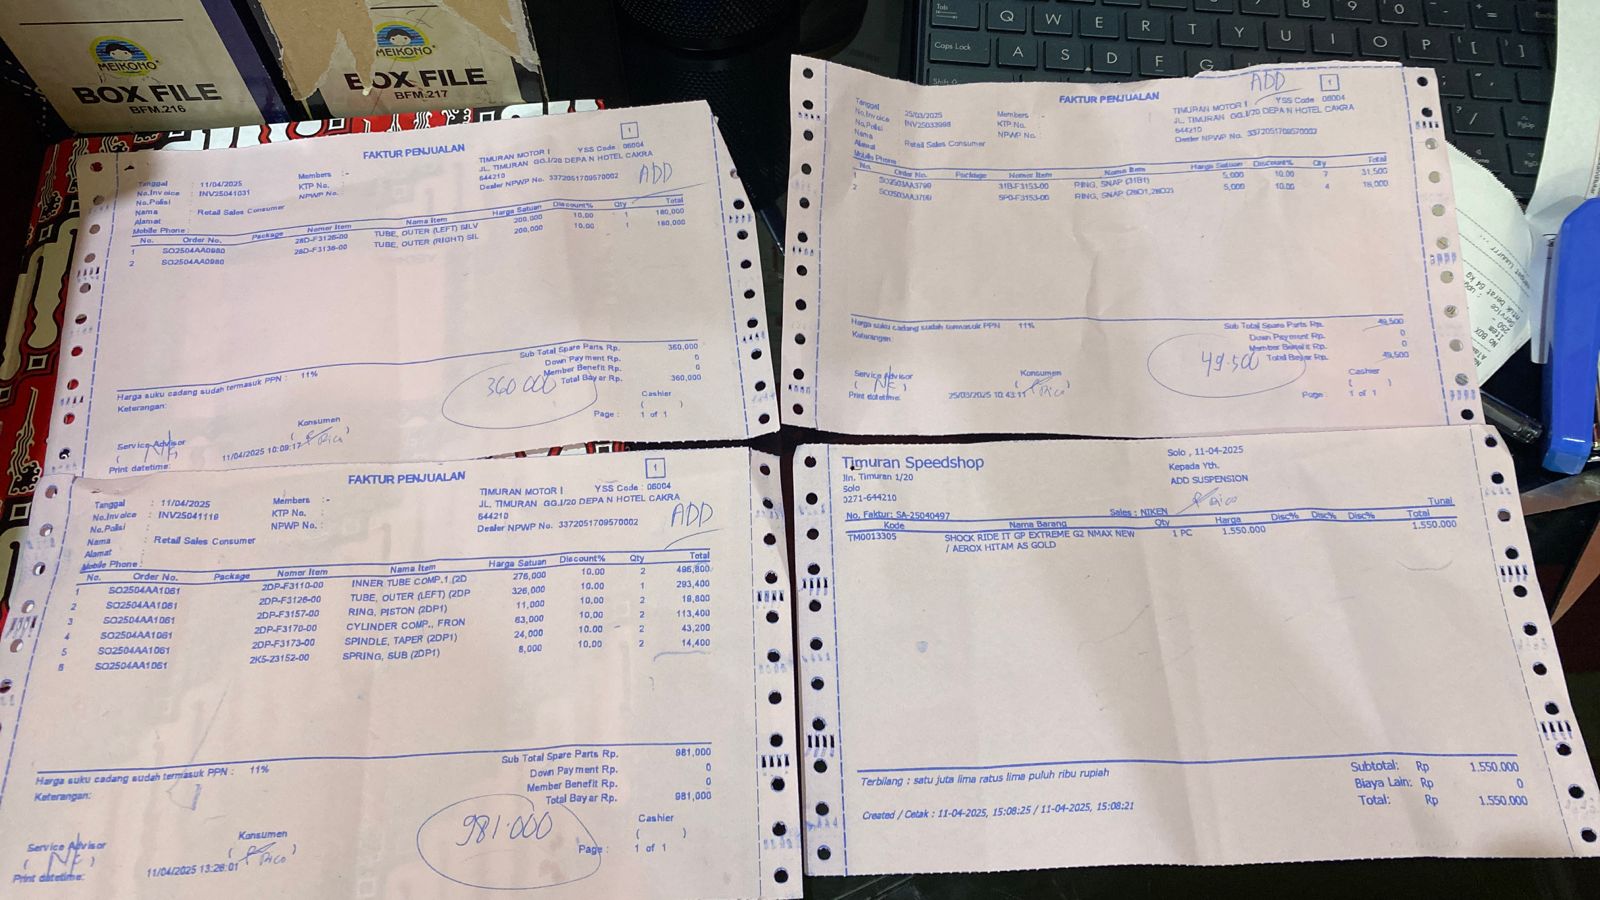 MEIKONO
BOX FILE
BFM.216
MEIKONO
BOX FILE
BFM.217
Tab
Q W E R T Y U I O P
Caps Lock
A S D F G
FAKTUR PENJUALAN
1
TIMURAN MOTOR I YSS Code : 06004
JL. TIMURAN GG.I/20 DEPA N HOTEL CAKRA
644210
Dealer NPWP No. 3372051709570002
ADD
Tanggal : 11/04/2025 Members : -
No.Invoice : INV25041031 KTP No. :
No.Polisi : NPWP No. :
Nama : Retail Sales Consumer
Alamat :
Mobile Phone :
No. Order No. Package Nomor Item Nama Item Harga Satuan Discount% Qty Total
1 SO2504AA0980 28D-F3126-00 TUBE, OUTER (LEFT) SILV 200,000 10.00 1 180,000
2 SO2504AA0980 28D-F3136-00 TUBE, OUTER (RIGHT) SIL 200,000 10.00 1 180,000
Harga suku cadang sudah termasuk PPN : 11%
Keterangan:
Sub Total Spare Parts Rp. 360,000
Down Payment Rp. 0
Member Benefit Rp. 0
Total Bayar Rp. 360,000
360 000
Service Advisor Konsumen Cashier
Rico
Print datetime: 11/04/2025 10:09:17 Page : 1 of 1
FAKTUR PENJUALAN
ADD
1
TIMURAN MOTOR I YSS Code : 06004
JL. TIMURAN GG.I/20 DEPA N HOTEL CAKRA
644210
Dealer NPWP No. 3372051709570002
Tanggal : 25/03/2025 Members :
No.Invoice : INV25033998 KTP No. :
No.Polisi : NPWP No. :
Nama : Retail Sales Consumer
Alamat
Mobile Phone
No. Order No. Package Nomor Item Nama Item Harga Satuan Discount% Qty Total
1 31B-F3153-00 RING, SNAP (31B1) 5,000 10.00 7 31,500
2 5P0-F3153-00 RING, SNAP 5,000 10.00 4 18,000
Harga suku cadang sudah termasuk PPN 11%
Keterangan:
Sub Total Spare Parts Rp. 49,500
Down Payment Rp. 0
Member Benefit Rp. 0
Total Bayar Rp. 49,500
49.500
Service Advisor Konsumen Cashier
Rico
Print datetime: 25/03/2025 10:43:11 Page : 1 of 1
FAKTUR PENJUALAN
1
TIMURAN MOTOR I YSS Code : 06004
JL. TIMURAN GG.I/20 DEPA N HOTEL CAKRA
644210
Dealer NPWP No. 3372051709570002
ADD
Tanggal : 11/04/2025 Members : -
No.Invoice : INV25041119 KTP No. :
No.Polisi : NPWP No. :
Nama : Retail Sales Consumer
Alamat :
Mobile Phone :
No. Order No. Package Nomor Item Nama Item Harga Satuan Discount% Qty Total
1 SO2504AA1061 2DP-F3110-00 INNER TUBE COMP.1 (2D 276,000 10.00 2 496,800
2 SO2504AA1061 2DP-F3126-00 TUBE, OUTER (LEFT) (2DP 326,000 10.00 1 293,400
3 SO2504AA1061 2DP-F3157-00 RING, PISTON (2DP1) 11,000 10.00 2 19,800
4 SO2504AA1061 2DP-F3170-00 CYLINDER COMP., FRON 63,000 10.00 2 113,400
5 SO2504AA1061 2DP-F3173-00 SPINDLE, TAPER (2DP1) 24,000 10.00 2 43,200
6 SO2504AA1061 2K5-23152-00 SPRING, SUB (2DP1) 8,000 10.00 2 14,400
Harga suku cadang sudah termasuk PPN : 11%
Keterangan:
Sub Total Spare Parts Rp. 981,000
Down Payment Rp. 0
Member Benefit Rp. 0
Total Bayar Rp. 981,000
981.000
Service Advisor Konsumen Cashier
Rico
Print datetime: 11/04/2025 13:26:01 Page : 1 of 1
Timuran Speedshop
Jln. Timuran 1/20
Solo
0271-644210
Solo , 11-04-2025
Kepada Yth.
ADD SUSPENSION
Rico
No. Faktur: SA-25040497 Sales : NIKEN Tunai
Kode Nama Barang Qty Harga Disc% Disc% Disc% Total
TM0013305 SHOCK RIDE IT GP EXTREME G2 NMAX NEW 1 PC 1.550.000 1.550.000
/ AEROX HITAM AS GOLD
Terbilang : satu juta lima ratus lima puluh ribu rupiah
Subtotal: Rp 1.550.000
Biaya Lain: Rp 0
Total: Rp 1.550.000
Created / Cetak : 11-04-2025, 15:08:25 / 11-04-2025, 15:08:21